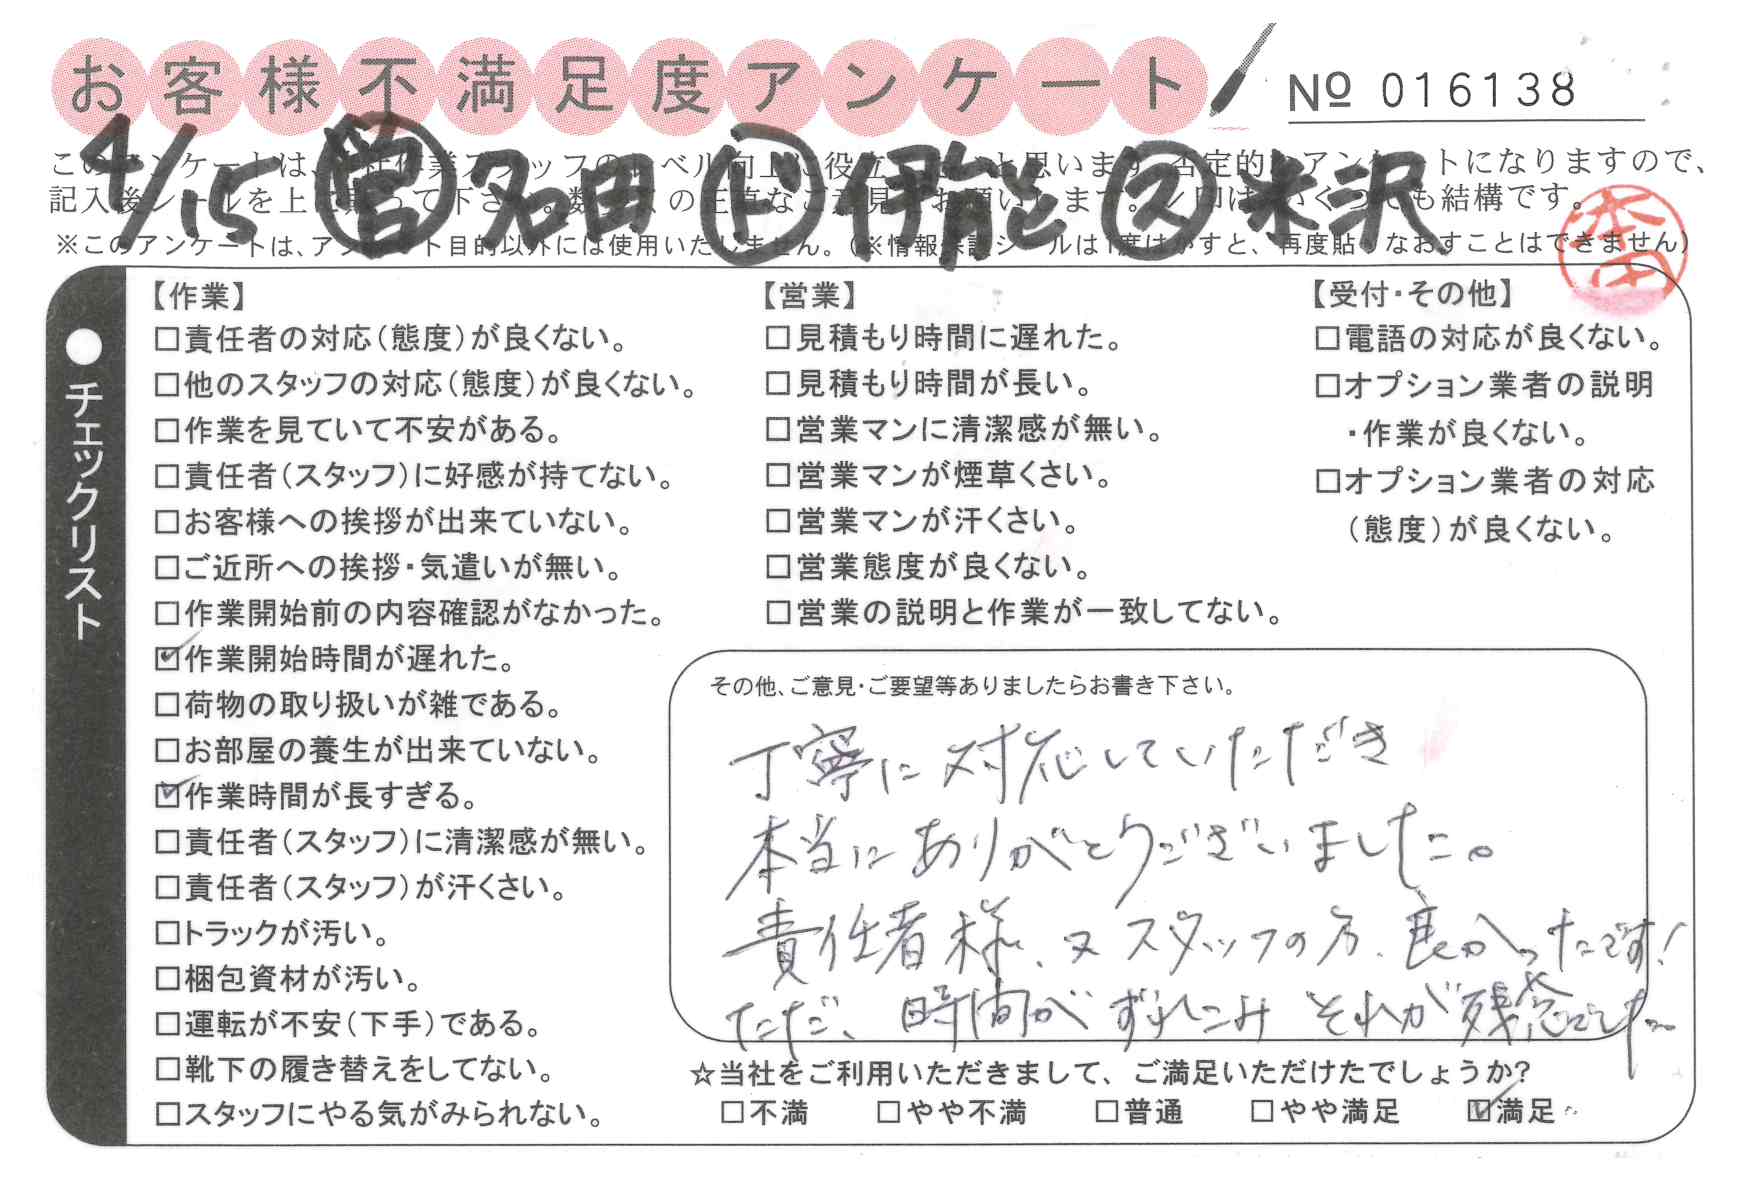 お客様不満足度アンケート
№ 016138
4/15 営 名田 ド 伊能 ス 米沢
本田
※このアンケートは、アンケート目的以外には使用いたしません。(※情報保護シールは1度はがすと、再度貼りなおすことはできません)
●チェックリスト
【作業】
□責任者の対応(態度)が良くない。
□他のスタッフの対応(態度)が良くない。
□作業を見ていて不安がある。
□責任者(スタッフ)に好感が持てない。
□お客様への挨拶が出来ていない。
□ご近所への挨拶・気遣いが無い。
□作業開始前の内容確認がなかった。
☑作業開始時間が遅れた。
□荷物の取り扱いが雑である。
□お部屋の養生が出来ていない。
☑作業時間が長すぎる。
□責任者(スタッフ)に清潔感が無い。
□責任者(スタッフ)が汗くさい。
□トラックが汚い。
□梱包資材が汚い。
□運転が不安(下手)である。
□靴下の履き替えをしてない。
□スタッフにやる気がみられない。
【営業】
□見積もり時間に遅れた。
□見積もり時間が長い。
□営業マンに清潔感が無い。
□営業マンが煙草くさい。
□営業マンが汗くさい。
□営業態度が良くない。
□営業の説明と作業が一致してない。
【受付・その他】
□電語の対応が良くない。
□オプション業者の説明
・作業が良くない。
□オプション業者の対応
(態度)が良くない。
その他、ご意見・ご要望等ありましたらお書き下さい。
丁寧に対応していただき
本当にありがとうございました。
責任者様、又スタッフの方、良かったです!
ただ、時間がずれこみそれが残念でした。
☆当社をご利用いただきまして、ご満足いただけたでしょうか?
□不満 □やや不満 □普通 □やや満足 ☑満足